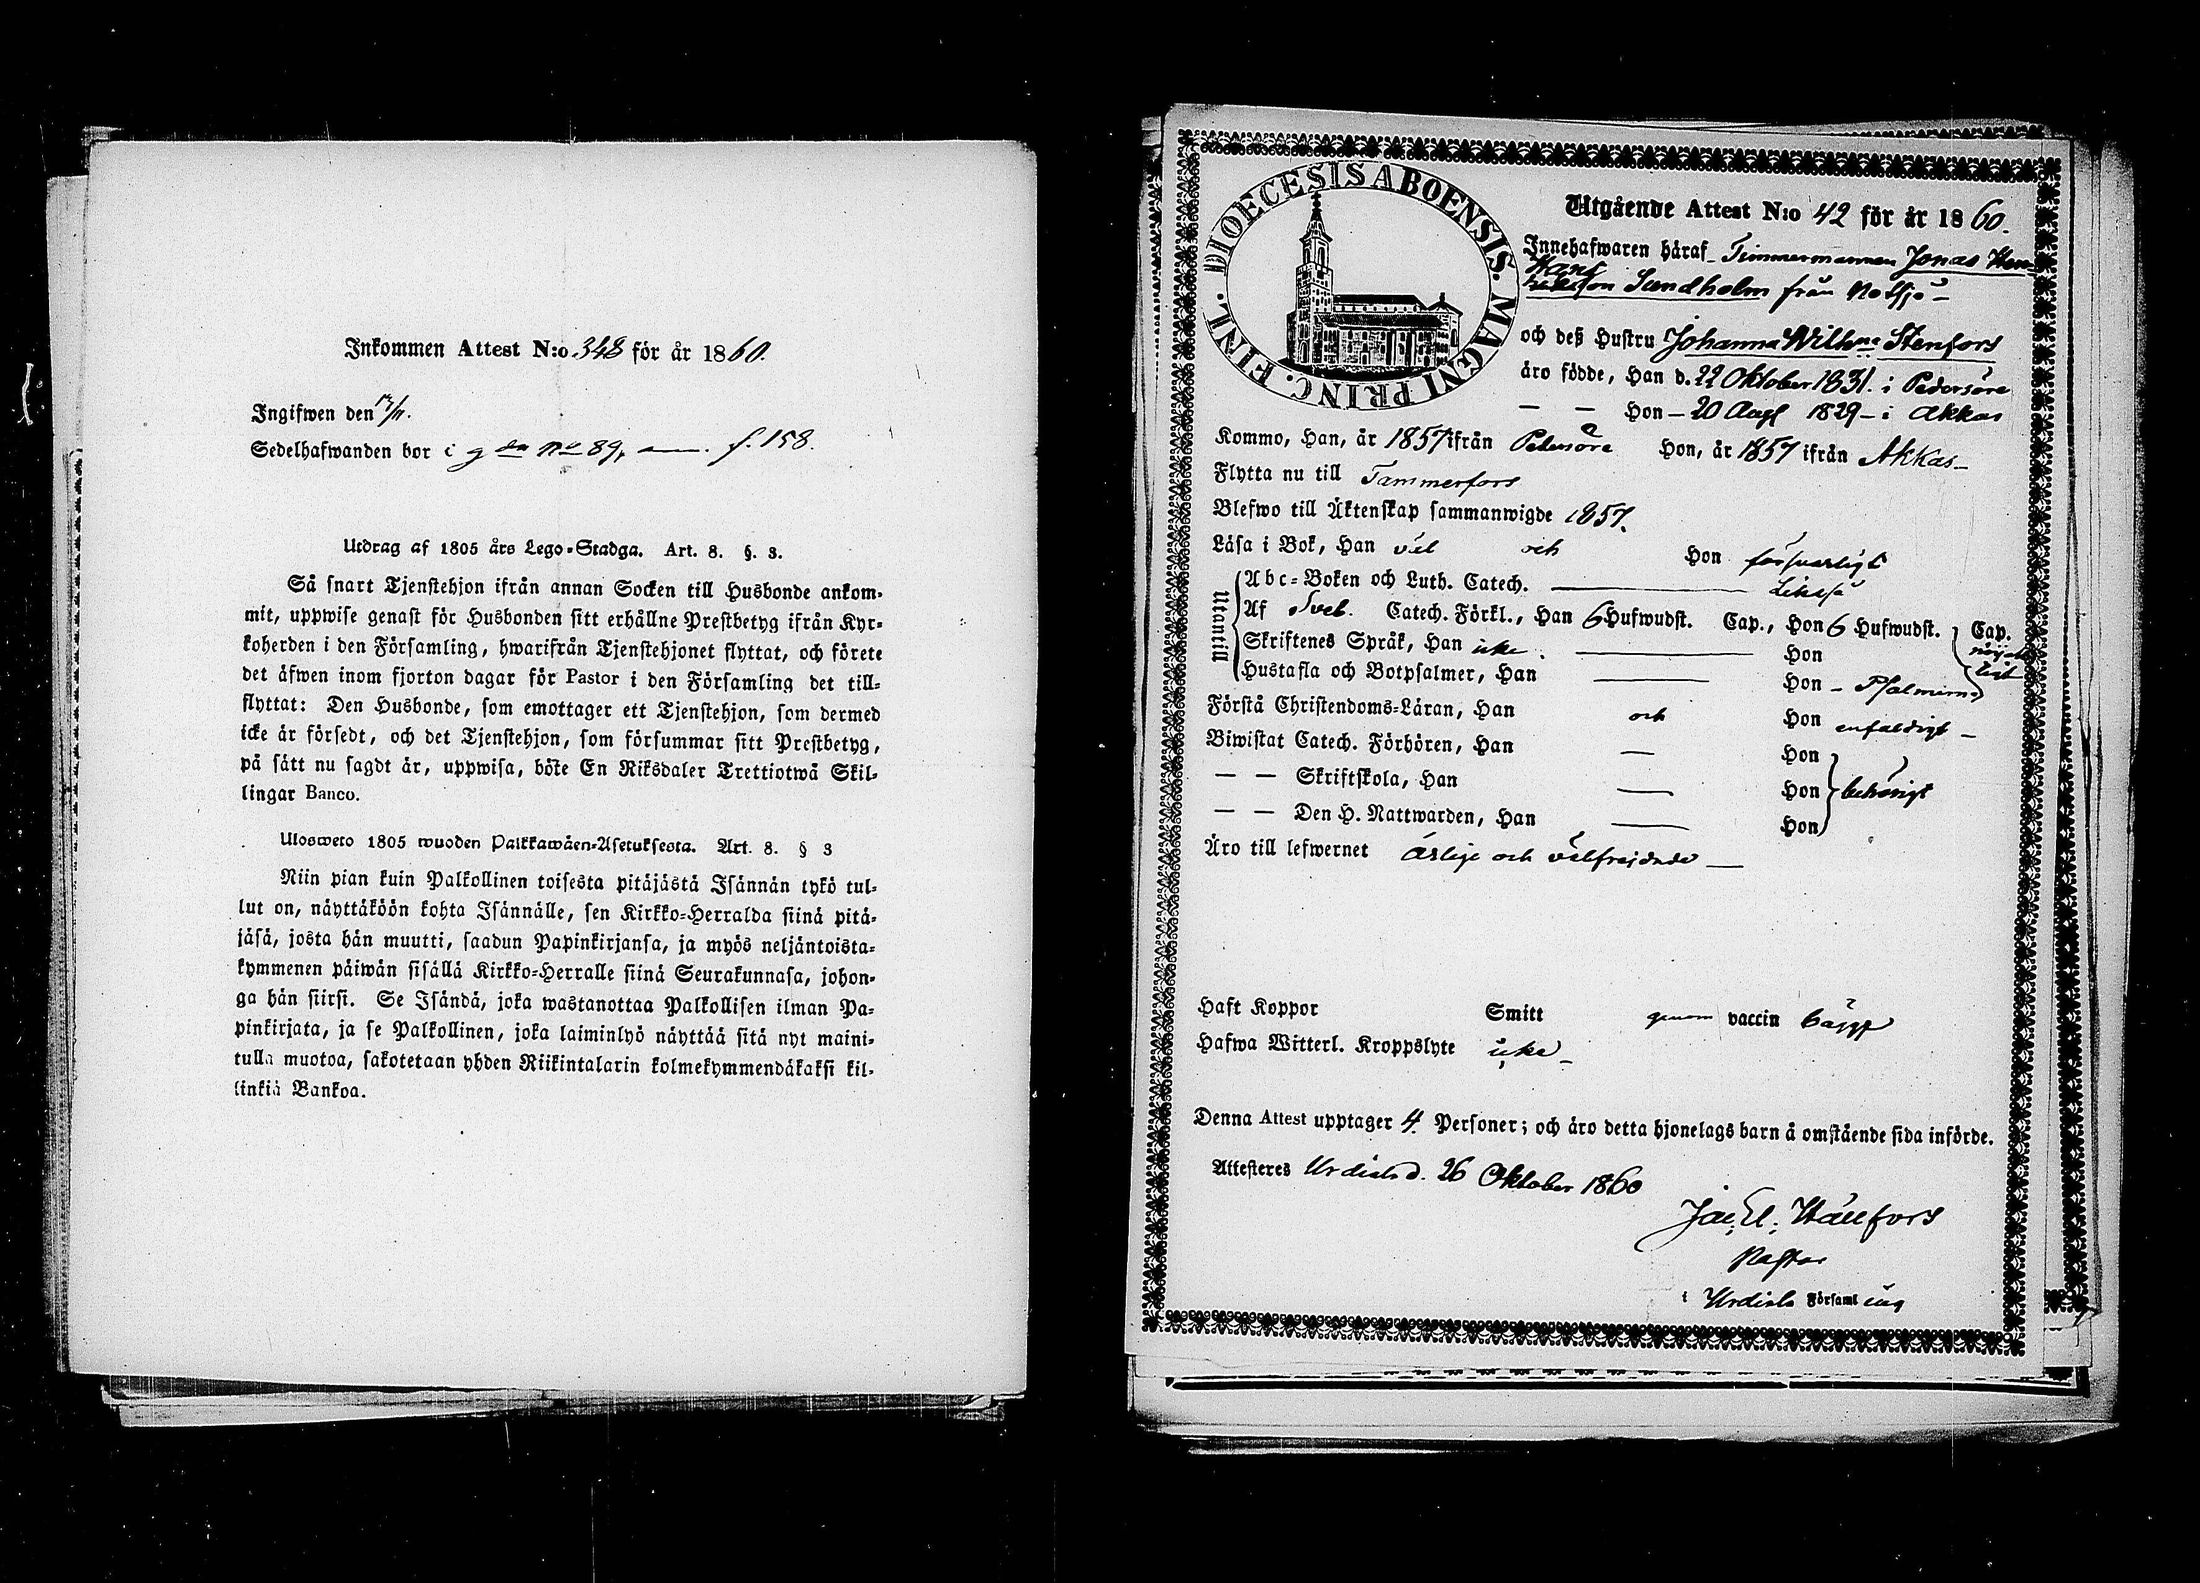 Inkommen Attest N:o 348 för år 1860.
Ingifwen den 17/11.
Sedelhafwanden bor i g N:o 89, f. 158.
Utdrag af 1805 års Lego-Stadga. Art. 8. §. 3.
Så snart Tjenstehjon ifrån annan Socken till Husbonde ankom-
mit, uppwise genast för Husbonden sitt erhållne Prestbetyg ifrån Kyr-
koherden i den Församling, hwarifrån Tjenstehjonet flyttat, och förete
det äfwen inom fjorton dagar för Pastor i den Församling det till-
flyttat: Den Husbonde, som emottager ett Tjenstehjon, som dermed
icke är försedt, och det Tjenstehjon, som försummar sitt Prestbetyg,
på sätt nu sagdt är, uppwisa, böte En Riksdaler Trettiotwå Skil-
lingar Banco.
Ulosweto 1805 wuoden Palkkawäen-Asetuksesta. Art. 8. § 3
Niin pian kuin Palkollinen toisesta pitäjästä Isännän tykö tul-
lut on, näyttäköön kohta Isännälle, sen Kirkko-Herralda siinä pitä-
jäsä, josta hän muutti, saadun Papinkirjansa, ja myös neljäntoista-
kymmenen päiwän sisällä Kirkko-Herralle siinä Seurakunnasa, johon-
ga hän siirsi. Se Isändä, joka wastanottaa Palkollisen ilman Pa-
pinkirjata, ja se Palkollinen, joka laiminlyö näyttää sitä nyt maini-
tulla muotoa, sakotetaan yhden Riikintalarin kolmekymmendäkaksi kil-
linkiä Bankoa.
DIOECESIS ABOENSIS. MAGNI PRINC. FINL.
Utgående Attest N:o 42 för år 1860.
Innehafwaren häraf Timmermannen Jonas
Hans
son Sundholm från Notsjö
och deß Hustru Johanna Wilhna Stenfors
äro födde, Han d. 22 Oktober 1831. i Pedersöre
— — Hon - 20 Aug 1829 - i Akkas
Kommo, Han, år 1857 ifrån Pedersöre Hon, år 1857 ifrån Akkas
Flytta nu till Tammerfors
Blefwo till Äktenskap sammanwigde 1857.
Läsa i Bok, Han väl och Hon försvarligt
Utantill
Abc-Boken och Luth. Catech. — Likaså
Af Sveb. Catech. Förkl., Han 6 Hufwudst. Cap., Hon 6 Hufwudst. Cap.
Skriftenes Språk, Han icke — Hon
Hustafla och Botpsalmer, Han — Hon - Psalmerna
Förstå Christendoms-Läran, Han och Hon enfaldigt —
Biwistat Catech. Förhören, Han — Hon
— — Skriftskola, Han — Hon behörigt
— — Den H. Nattwarden, Han — Hon
Äro till lefwernet ärlige och välfrejdade —
Haft Koppor Smitt genom vaccin bägge
Hafwa Witterl. Kroppslyte icke —
Denna Attest upptager 4 Personer; och äro detta hjonelags barn å omstående sida införde.
Attesteres Urdiala d. 26 Oktober 1860
Jac. El. Hällfors
Pastor
i Urdiala Församling